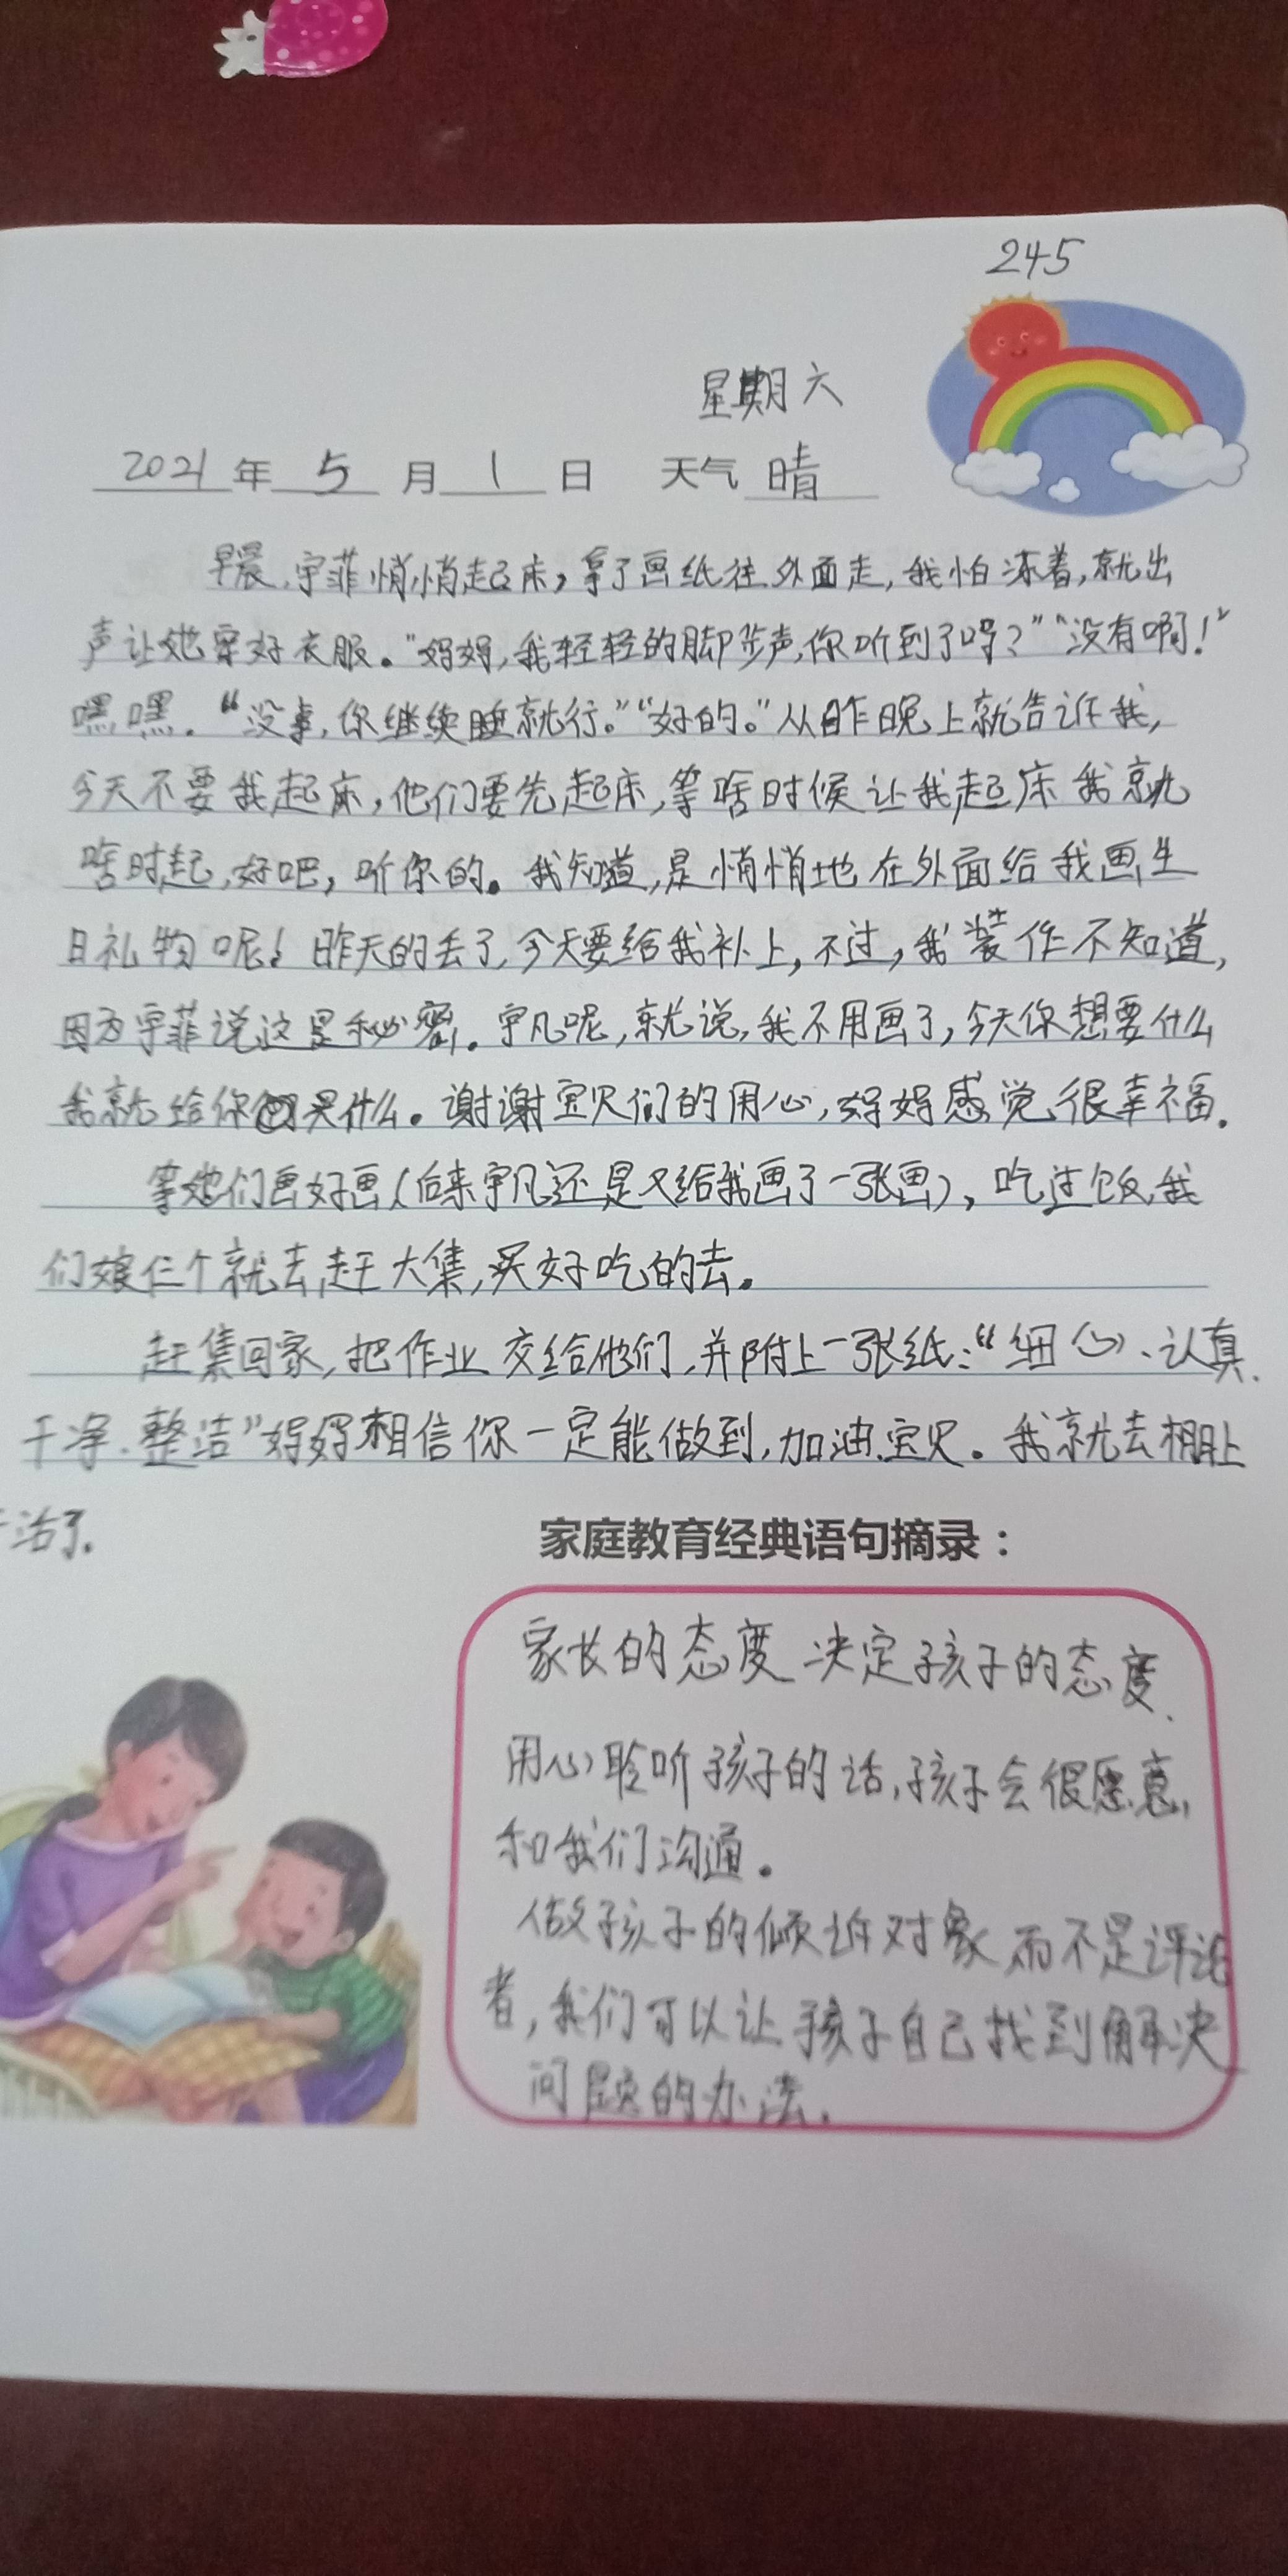 245
星期六
2021年 5 月 1 日 天气 晴
早晨,宇菲悄悄起床,拿了画纸往外面走,我怕冻着,就出
声让她穿好衣服。“妈妈,我轻轻的脚步声,你听到了吗?”“没有啊!”
嘿嘿.“没事,你继续睡就行。”“好的。”从昨晚上就告诉我,
今天不要我起床,他们要先起床,等啥时候让我起床我就
啥时起,好吧,听你的。我知道,是悄悄地在外面给我画生
日礼物呢!昨天的丢了,今天要给我补上,不过,我装作不知道,
因为宇菲说这是秘密.宇凡呢,就说,我不用画了,今天你想要什么
我就给你买什么。谢谢宝贝们的用心,妈妈感觉很幸福.
等她们画好画(后来宇凡还是又给我画了一张画),吃过饭,我
们娘仨个就去赶大集,买好吃的去。
赶集回家,把作业交给他们,并附上一张纸:“细心、认真.
干净.整洁”妈妈相信你一定能做到,加油.宝贝。我就去棚上
干活了.
家庭教育经典语句摘录:
家长的态度决定孩子的态度.
用心聆听孩子的话,孩子会很愿意,
和我们沟通。
做孩子的倾诉对象而不是评论
者,我们可以让孩子自己找到解决
问题的办法.